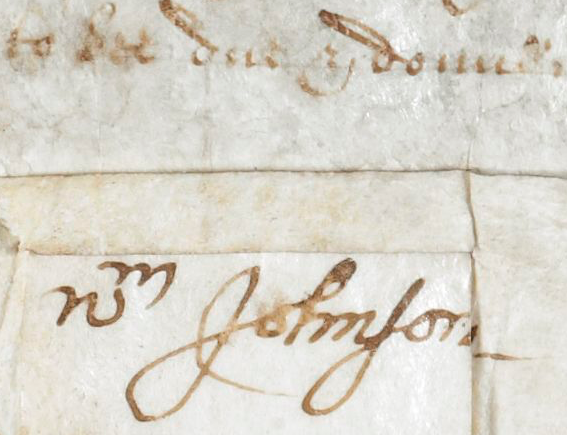 to bee due & donne
Wm Johnson